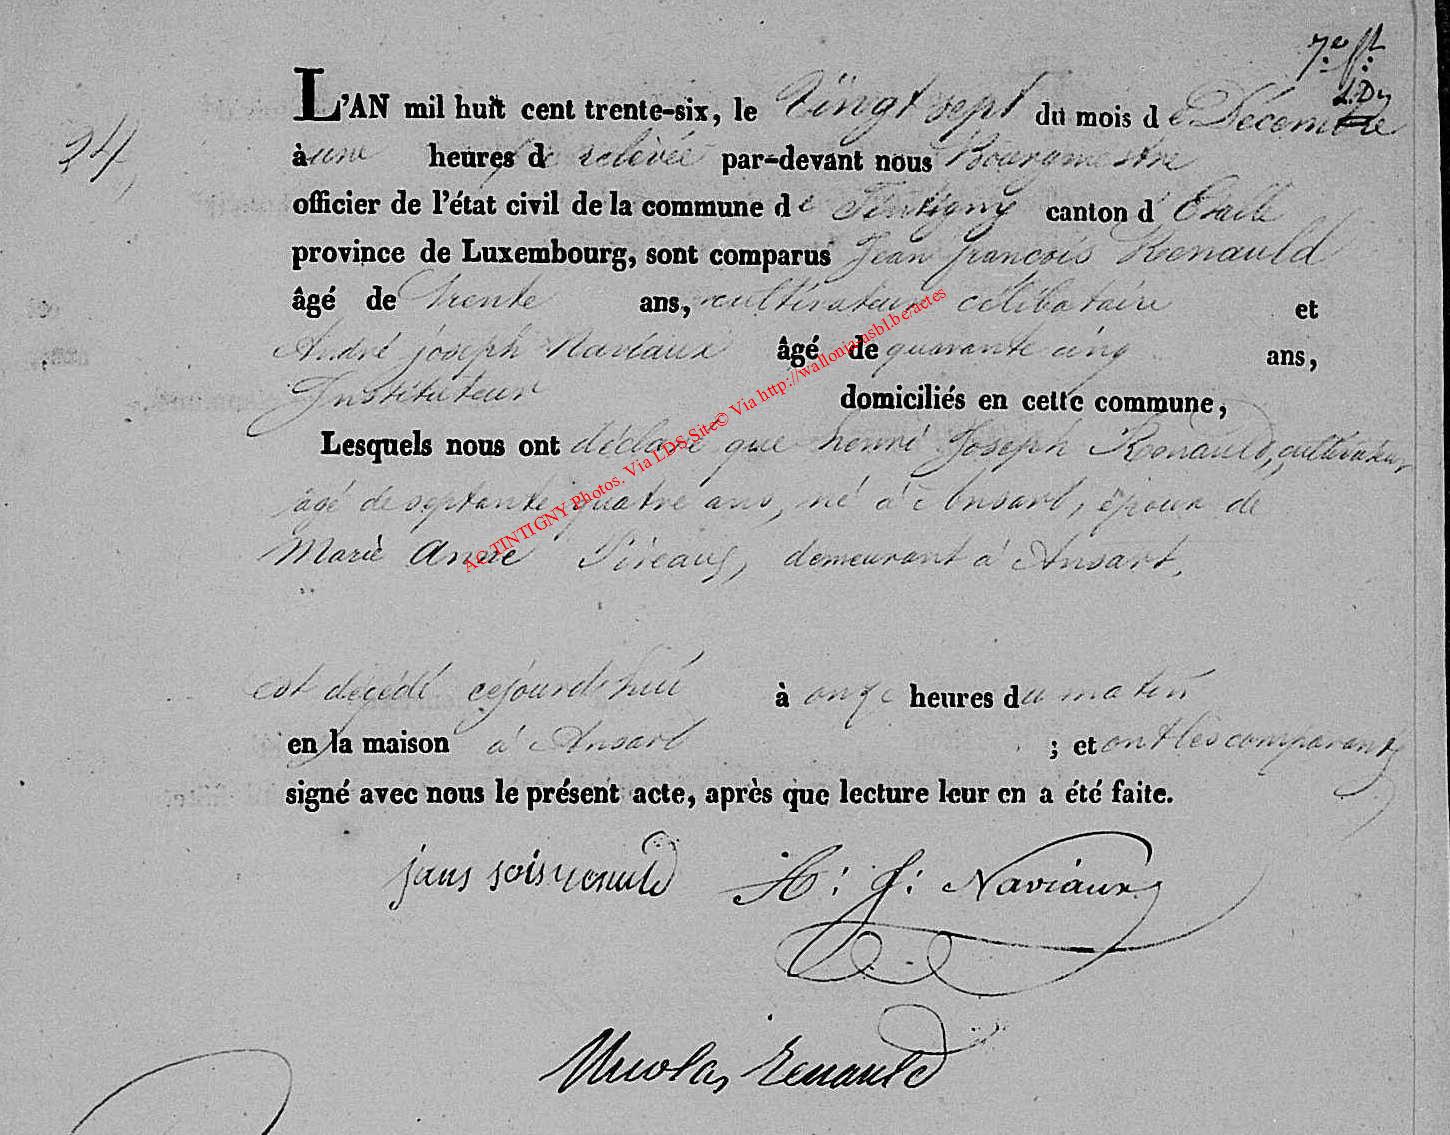 7.e
L'AN mil huit cent trente-six, le Vingt sept du mois de Décembre
24,
à une heures de relevée par-devant nous Bourgmestre
officier de l'état civil de la commune de Tintigny canton d'Etalle
province de Luxembourg, sont comparus Jean françois Renauld
âgé de trente ans, cultivateur célibataire et
André joseph Naviaux âgé de quarante cinq ans,
Instituteur domiciliés en cette commune,
Lesquels nous ont déclaré que henri Joseph Renauld, cultivateur
âgé de septante quatre ans, né à Ansart, époux de
Marie Anne Pireaux, demeurant à Ansart,
est décédé cejourd'hui à onze heures du matin
en la maison à Ansart ; et ont les comparants
signé avec nous le présent acte, après que lecture leur en a été faite.
A: J: Naviaux
Nicolas Renauld
AC TINTIGNY Photos. Via LDS Site© Via http://wallonia-asbl.be/actes